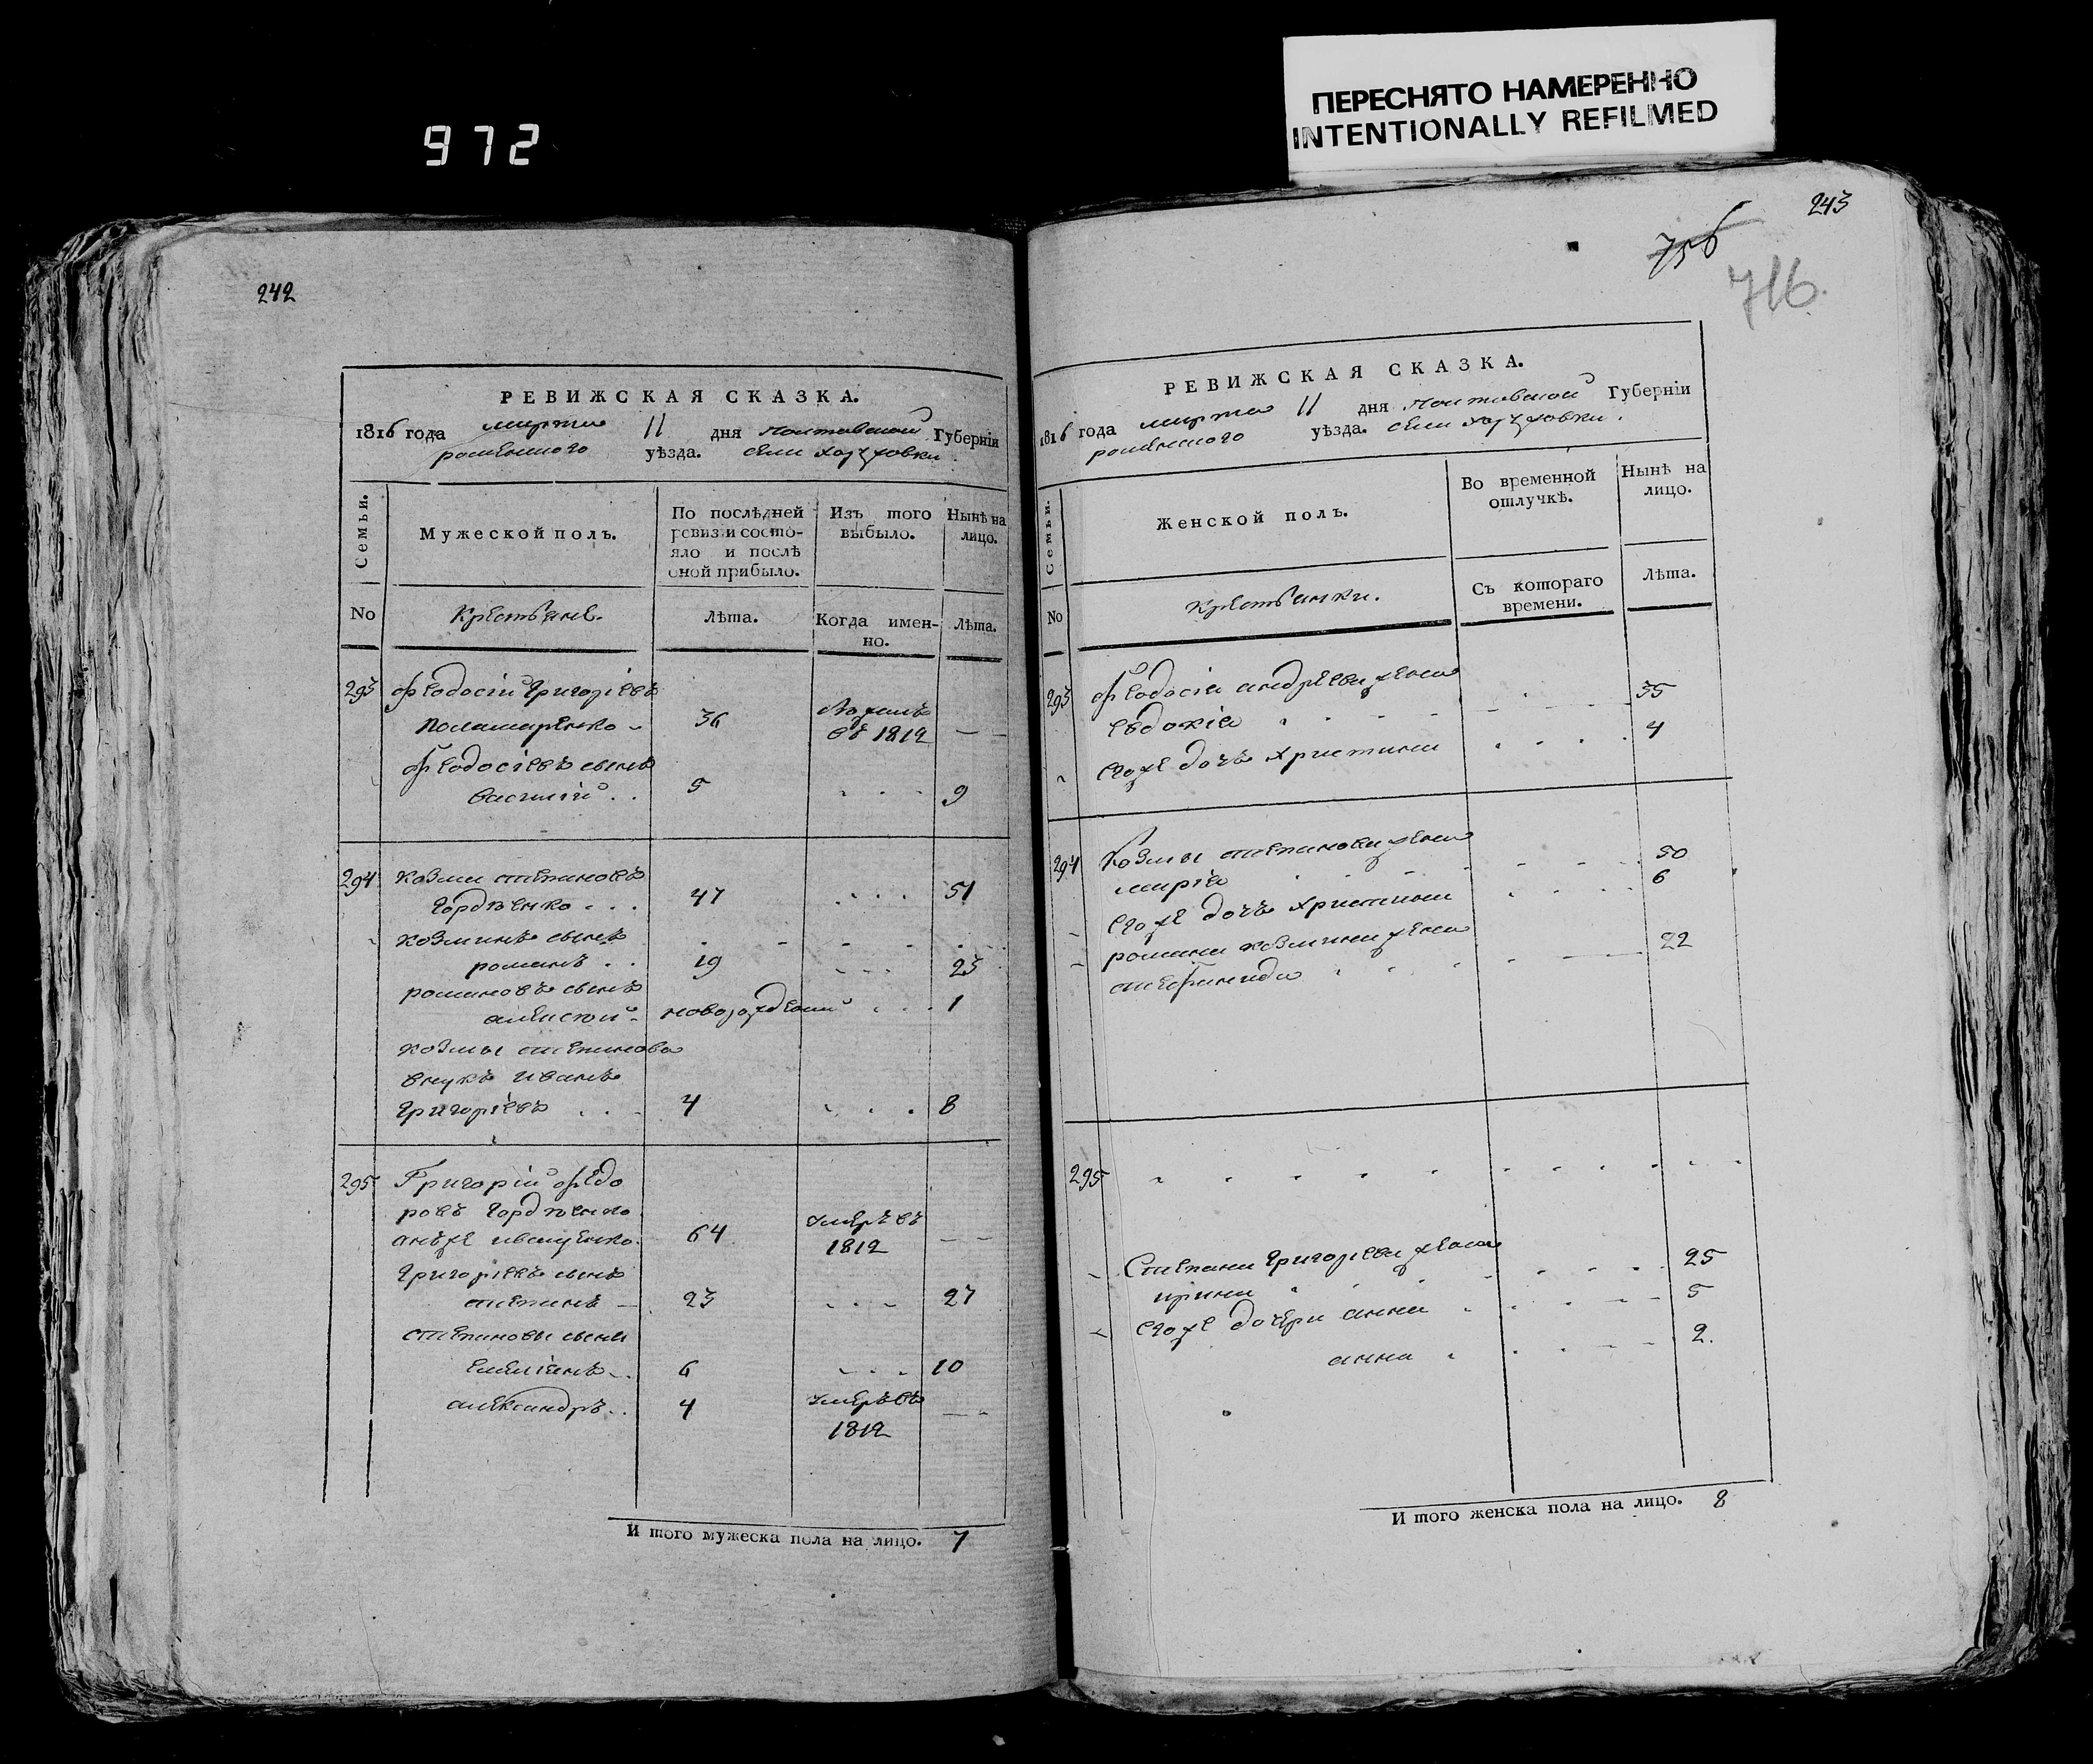 972
ПЕРЕСНЯТО НАМЕРЕННО
INTENTIONALLY REFILMED
242
РЕВИЖСКАЯ СКАЗКА.
1816 года марта 11 дня Полтавской Губерніи
роменского уѣзда. села
Семьи.
Мужеской полъ.
По послѣдней ревизіи состояло и послѣ оной прибыло.
Изъ того выбыло.
Нынѣ на лицо.
No
Крестьяне.
Лѣта.
Когда именно.
Лѣта.
293 Феодосій Григоріевъ
Поламаренко 36
въ 1812
Феодосіевъ сынъ
Василій 5 9
294 Козма Степановъ
Гордѣенко 47 51
Козминъ сынъ
романъ 19 23
романовъ сынъ
алексѣй новорожденый 1
Козмы Степанова
внукъ Иванъ
Григоріевъ 4 8
295 Григорій Федо
ровъ Гордѣенко
онъ же иващенко 64 умеръ въ
1812
Григоріевъ сынъ
степанъ 23 27
степановы сыны
Емеліянъ 6 10
александръ 4 умеръ въ
1812
И того мужеска пола на лицо. 7
243
756
716.
РЕВИЖСКАЯ СКАЗКА.
1816 года марта 11 дня Полтавской Губерніи
роменского уѣзда. села
Семьи.
Женской полъ.
Во временной отлучкѣ.
Нынѣ на лицо.
No
Крестьянки.
Съ котораго времени.
Лѣта.
293 Феодосія андреева жена
Евдокія 35
Его же дочь Христина 4
294 Козмы степанова жена
марія 50
Его же дочь Христина 6
романа козмина жена
степанида 22
295
Степана Григоріева жена
ирина 25
Его же дочери анна 5
анна 2.
И того женска пола на лицо. 8